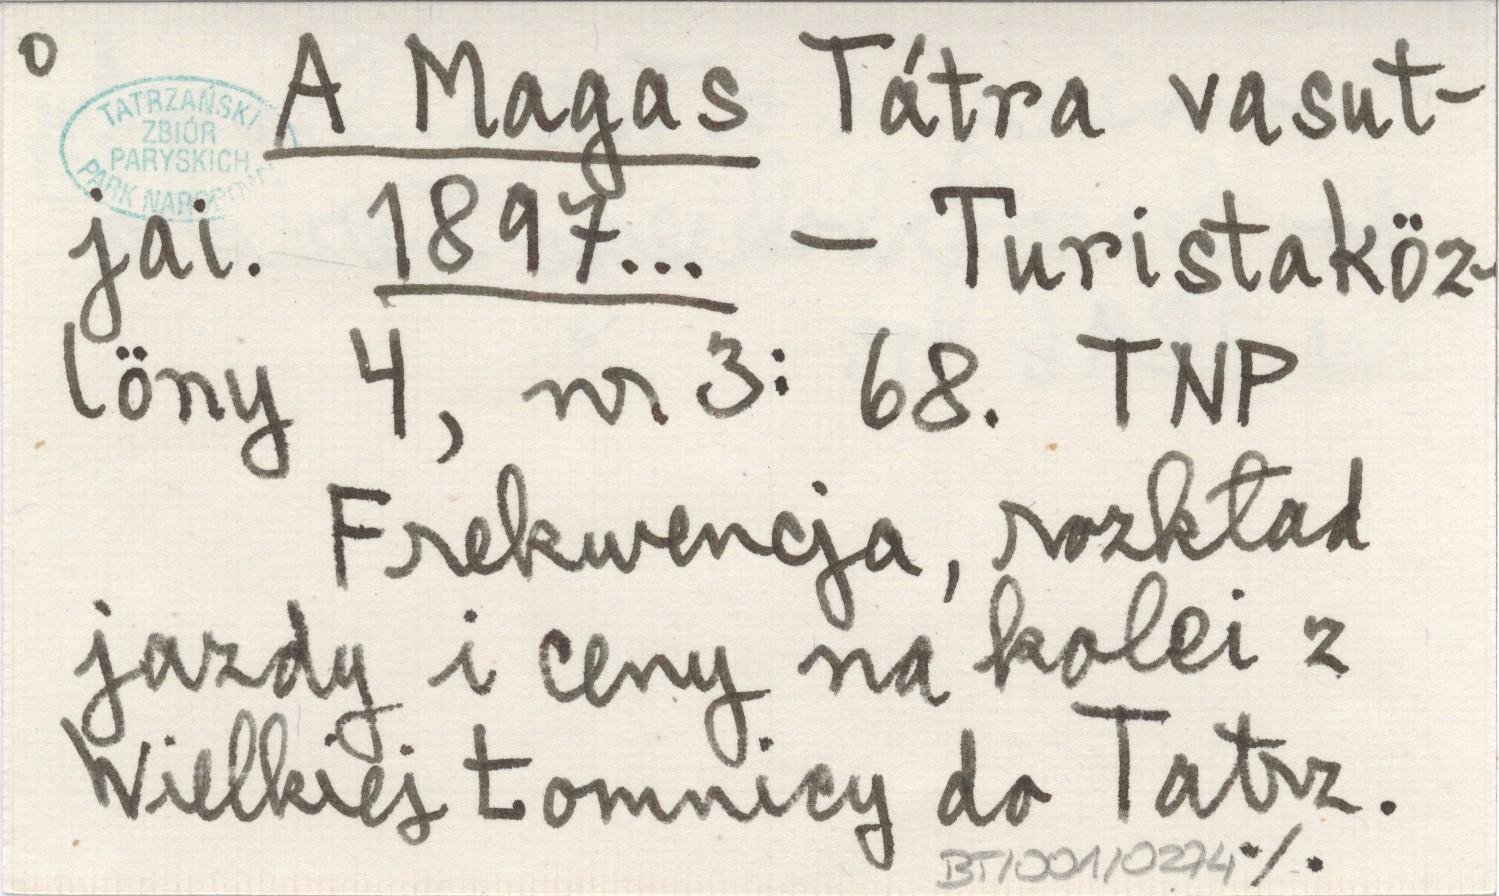 O
TATRZAŃSKI
ZBIÓR
PARYSKICH
PARK NARODOWY
A Magas Tátra vasut-
jai. 1897... — Turistaköz-
löny 4, nr 3: 68. TNP
Frekwencja, rozkład
jazdy i ceny na kolei z
Wielkiej Łomnicy do Tatrz.
BT/001/0274 ./.